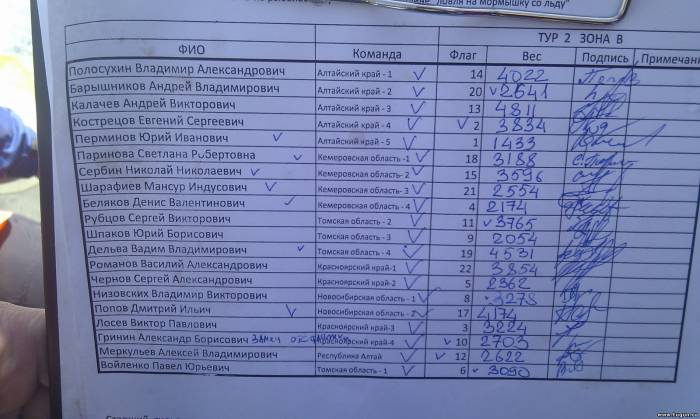 "Ловля на мормышку со льду"
ТУР 2 ЗОНА В
ФИО Команда Флаг Вес Подпись Примечани
Полосухин Владимир Александрович Алтайский край - 1 14 4022
Барышников Андрей Владимирович Алтайский край - 2 20 2641
Калачев Андрей Викторович Алтайский край - 3 13 4811
Кострецов Евгений Сергеевич Алтайский край - 4 2 3834
Перминов Юрий Иванович Алтайский край - 5 1 1433
Паринова Светлана Робертовна Кемеровская область -1 18 3188
Сербин Николай Николаевич Кемеровская область- 2 15 3596
Шарафиев Мансур Индусович Кемеровская область- 3 21 2554
Беляков Денис Валентинович Кемеровская область - 4 4 2174
Рубцов Сергей Викторович Томская область - 2 11 3765
Шпаков Юрий Борисович Томская область - 3 9 2054
Дельва Вадим Владимирович Томская область - 4 19 4531
Романов Василий Александрович Красноярский край-1 22 3854
Чернов Сергей Александрович Красноярский край-2 5 2362
Низовских Владимир Викторович Новосибирская область - 1 8 3278
Попов Дмитрий Ильич Новосибирская область - 2 17 4174
Лосев Виктор Павлович Красноярский край-3 3 3224
Гринин Александр Борисович Красноярский край-4 10 2703
Меркульев Алексей Владимирович Республика Алтай 12 2622
Войленко Павел Юрьевич Томская область - 1 6 3090